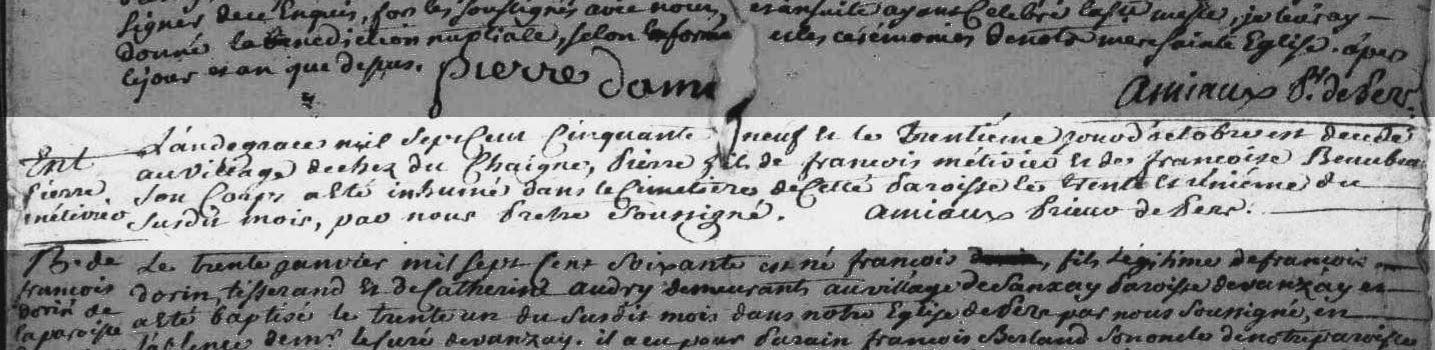 signer de ce Enquis, fors les soussignés avec nous, et ensuite ayant Celebré la ste messe, je leur ay
donné la benediction nuptiale, selon la forme et les cérémonies de notre mere Sainte Eglise. à pers
le jour et an que dessus. pierre dami
amiaux pr. de pers.
L'an de grace mil sept Cent Cinquante neuf et le trentième jour d'octobre est decedé
Ent au village de chez du Chaigne, pierre fils de francois métivier et de francoise Beaubeau
pierre son Corps a eté inhumé dans le Cimetiere de Cette paroisse le trente et unième du
métivier susdit mois, par nous pretre Soussigné. amiaux prieur de pers.
B. de Le trente janvier mil sept cent soixante est né francois, fils légitime de francois
francois dorin, tisserand et de Catherine audry demeurants au village de Sanzay paroisse de vanzay et
dorin de a eté baptisé le trente un du susdit mois dans notre Eglise de pers par nous soussigné, en
la paroisse l'absence de mr le curé de vanzay. il a eu pour parain francois Berland son oncle de notre paroisse